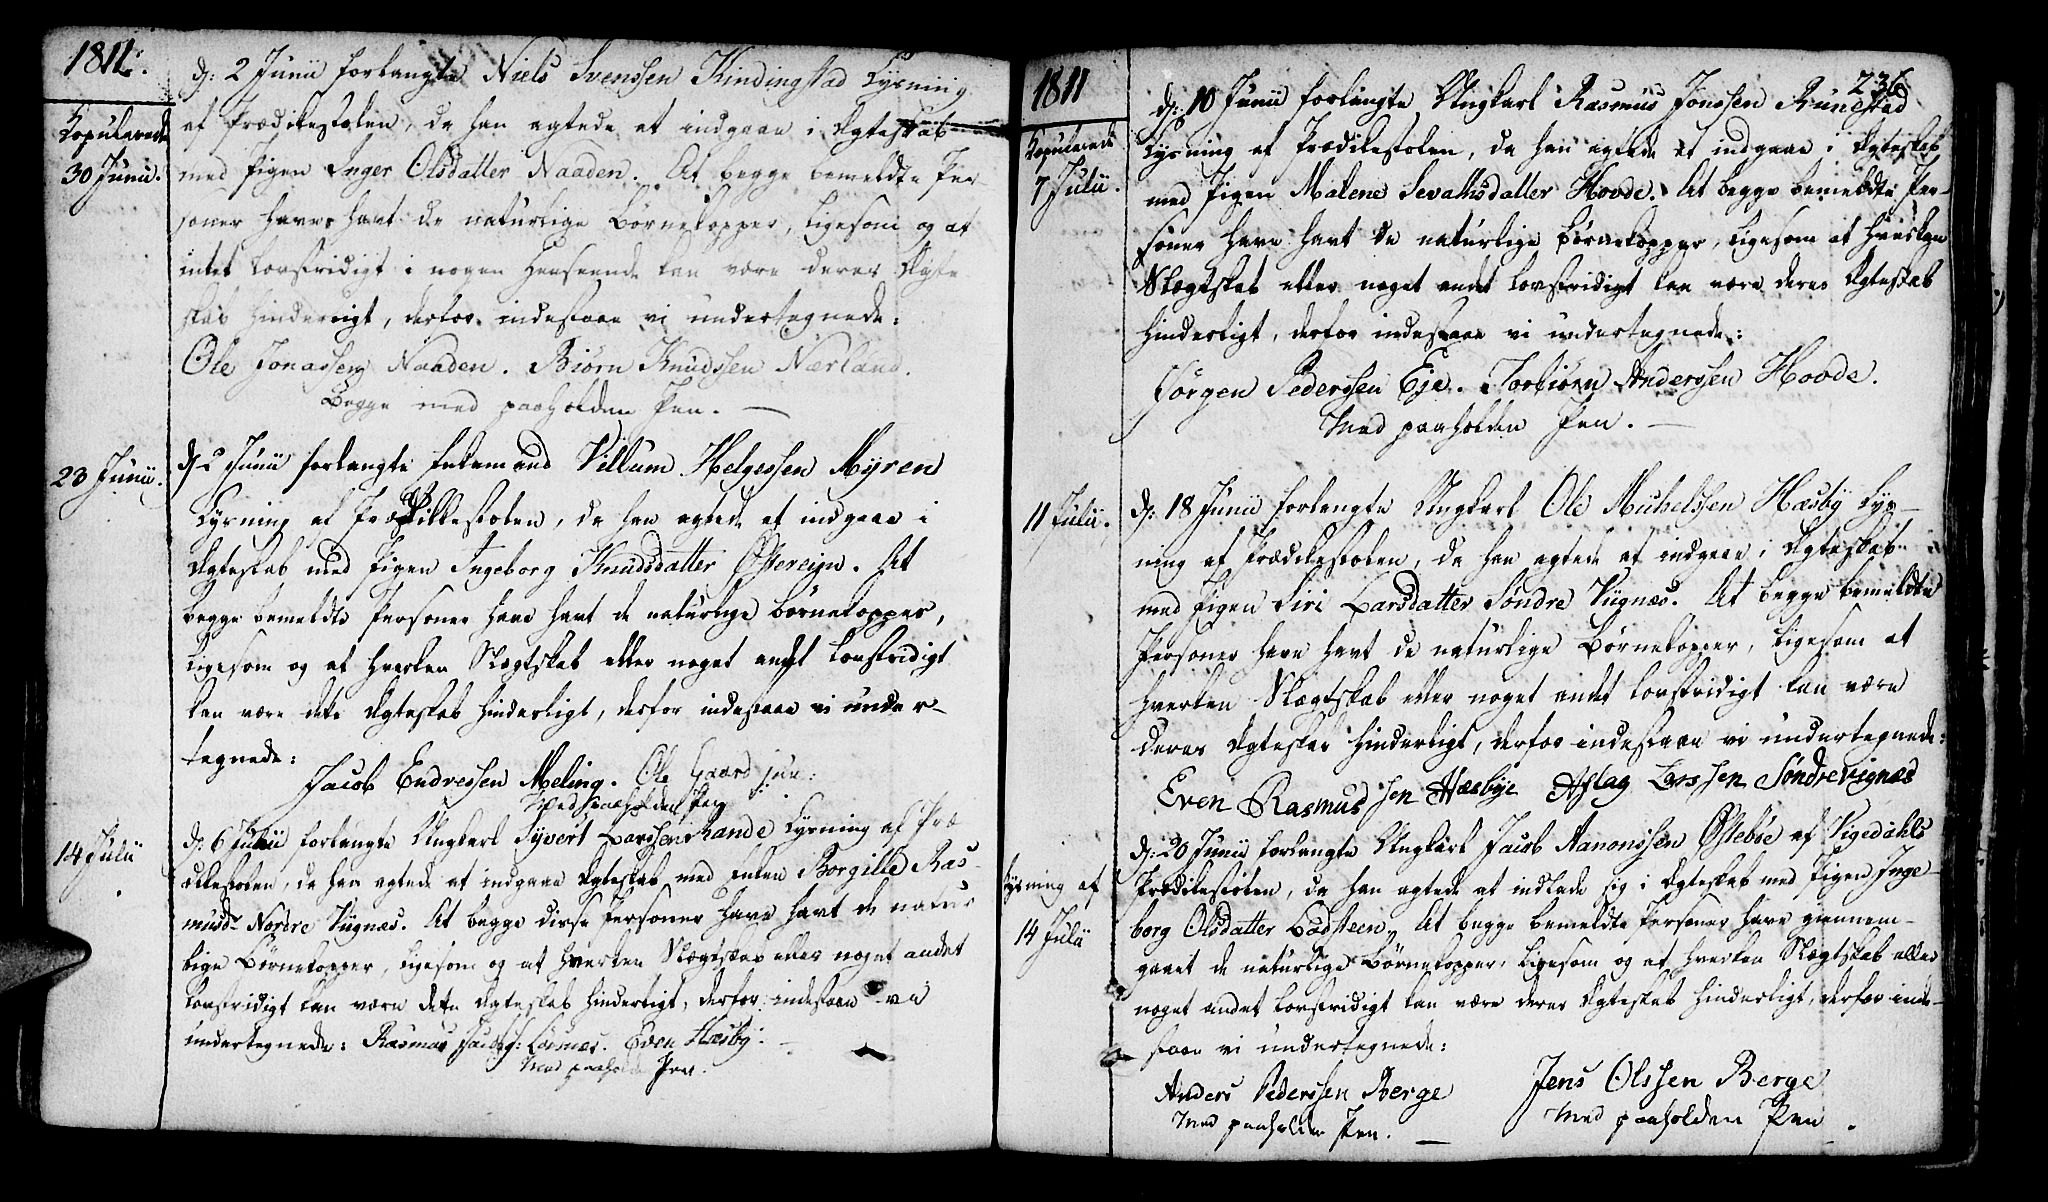 1811.
Copulerede
30 Junii.
d: 2 Junii forlangte Niels Svenssen Kindingstad Lysning
af Prædikestolen, da han agtede at indgaae i Ægteskab
med Pigen Inger Olsdatter Naaden. At begge bemeldte Per-
soner haver havt de naturlige Børnekopper, ligesom og at
intet lovstridigt i nogen Henseende kan være deres Ægte
skab hinderligt, derfor indestaae vi undertegnede:
Ole Jonassen Naaden. Biørn Knudssen Nærland.
Begge med paaholden Pen. —
23 Junii.
d: 2 Junii forlangte Enkemand Villum Helgessen Myren
Lysning af Prædikestolen, da han agtede at indgaae i
Ægteskab med Pigen Ingeborg Knudsdatter Østereijn. At
begge bemeldte Personer have havt de naturlige Børnekopper,
ligesom og at hverken Slægtskab eller noget andet lovstridigt
kan være dette Ægteskab hinderligt, derfor indestaae vi under-
tegnede:
Jacob Endressen Meling. Ole Gaard jun:
Med paaholden Pen
14 Julii
d: 6 Junii forlangte Ungkarl Syvert Larssen Sande Lysning af Præ
dikestolen, da han agtede at indgaae Ægteskab med Enken Borgille Ras-
musdr Nordre Viignæs. At begge disse Personer have havt de natur
lige Børnekopper, ligesom og at hverken Slægtskab eller noget andet
lovstridigt kan være dette Ægteskab hinderligt, derfor indestaae vi
undertegnede: Rasmus Jacobs: Even Hæsby.
Med paaholden Pen.
1811
236
Copulerede
7 Julii.
d: 10 Junii forlangte Ungkarl Rasmus Jonssen Runestad
Lysning af Prædikestolen, da han agtede at indgaae i Ægteskab
med Pigen Malene Sevathsdatter Hovde. At begge bemeldte Per-
soner have havt de naturlige Børnekopper, ligesom at hverken
Slægtskab eller noget andet lovstridigt kan være deres Ægteskab
hinderligt, derfor indestaae vi undertegnede:
Jørgen Pederssen Eje. Torbiørn Anderssen Hovde.
Med paaholden Pen. —
11 Julii.
d: 18 Junii forlangte Ungkarl Ole Michelssen Hæsby Lys-
ning af Prædikestolen, da han agtede at indgaae i Ægteskab
med Pigen Siri Larsdatter Søndre Viignæs. At begge bemeldte
Personer have havt de naturlige Børnekopper, ligesom at
hverken Slægtskab eller noget andet lovstridigt kan være
deres Ægteskab hinderligt, derfor indestaae vi undertegnede:
Even Rasmussen Hæsbye Aslag Larssen Søndrevignæs
Lysning af
14 Julii
d: 20 Junii forlangte Ungkarl Jacob Aanonssen Østebøe af Vigedahls
Prædikestolen, da han agtede at indlade sig i Ægteskab med Pigen Inge-
borg Olsdatter Ladsteen, At begge bemeldte Personer have giennem-
gaaet de naturlige Børnekopper, ligesom og at hverken Slægtskab eller
noget andet lovstridigt kan være deres Ægteskab hinderligt, derfor inde-
staae vi undertegnede:
Anders Pederssen Berge
Med paaholden Pen. —
Jens Olssen Berge
Med paaholden Pen.